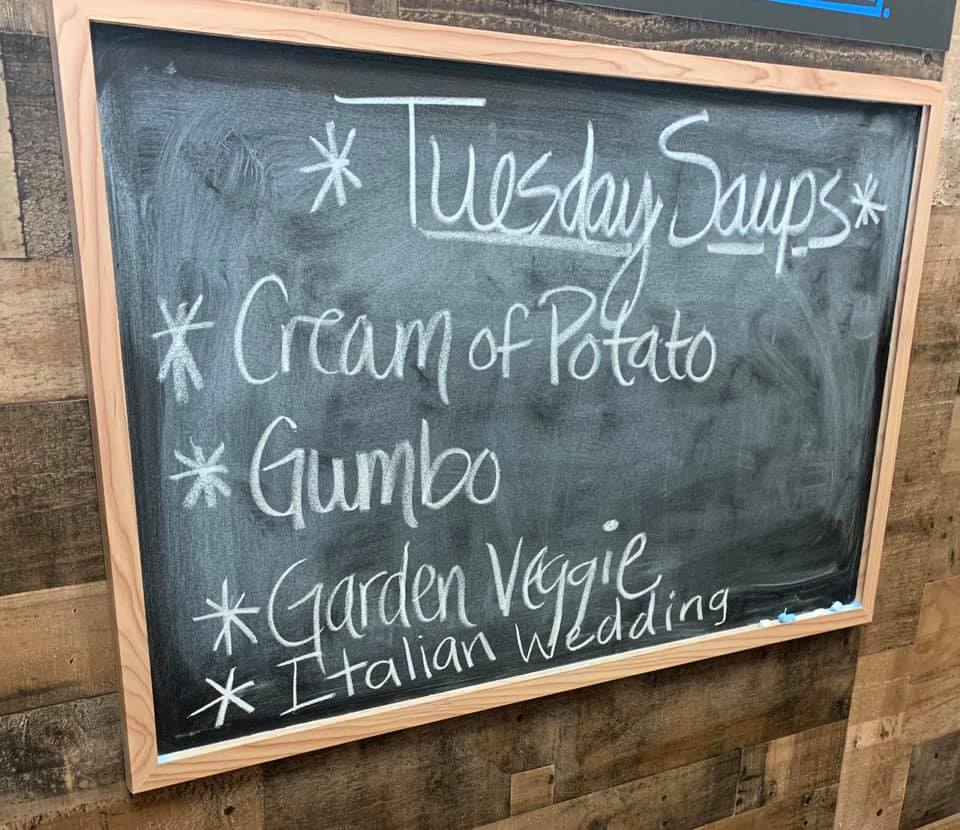 * Tuesday Soups *
* Cream of Potato
* Gumbo
* Garden Veggie
* Italian Wedding